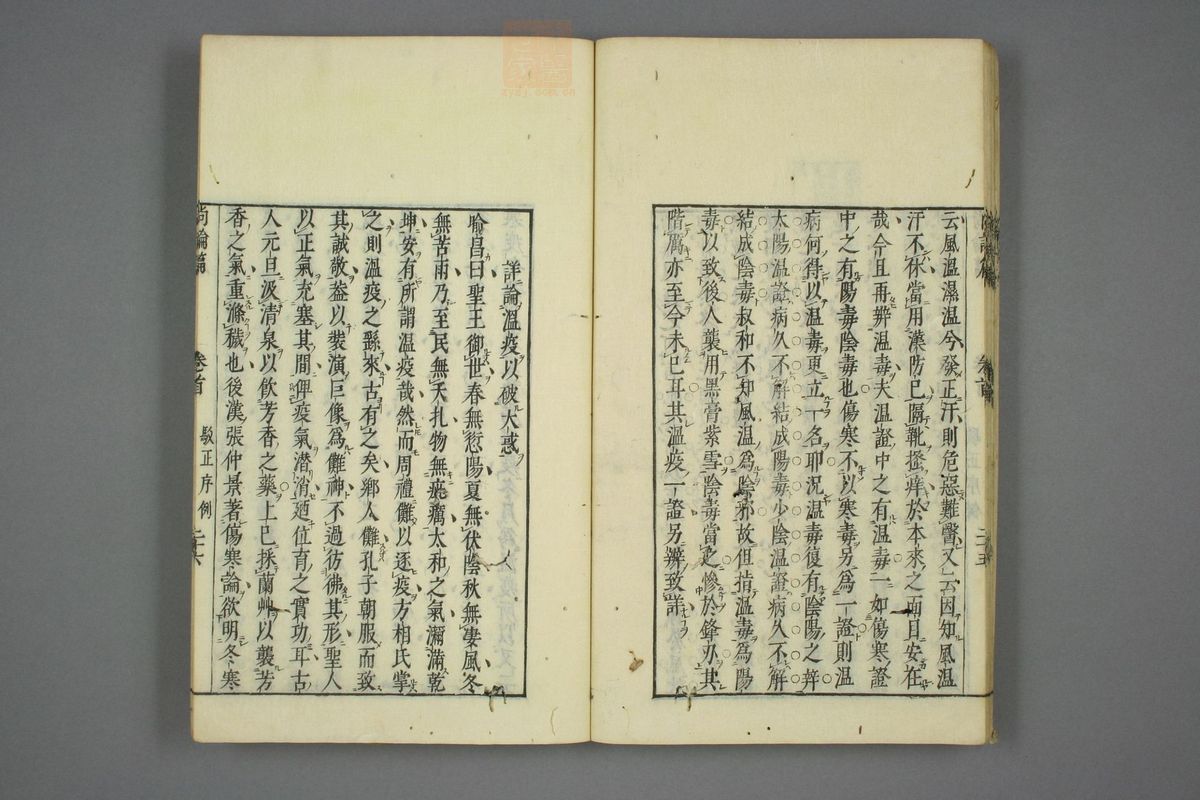 云風溫濕溫今發正汗則危惡難醫又云因知風溫
汗不休當用漢防已隔靴搔癢於本來之面目安在
哉今且再辨溫毒夫溫證中之有溫毒一如傷寒證
中之有陽毒陰毒也傷寒不以寒毒另爲一證則溫
病何得以溫毒更立一名耶況溫毒復有陰陽之辨
太陽溫證病久不解結成陽毒少陰溫證病久不解
結成陰毒叔和不知風溫爲陰邪故但指溫毒爲陽
毒以致後人襲用黑膏紫雪陰毒當之慘於鋒刃其
階厲亦至今未已耳其溫疫一證另辨致詳
二十五
詳論溫疫以破大惑
喻昌曰聖王御世春無愆陽夏無伏陰秋無凄風冬
無苦雨乃至民無夭扎物無疵癘太和之氣瀰滿乾
坤安有所謂溫疫哉然而周禮儺以逐疫方相氏掌
之則溫疫之繇來古有之矣鄉人儺孔子朝服而致
其誠敬葢以裝演巨像爲儺神不過彷彿其形聖人
以正氣充塞其間俾疫氣潜消廼位育之實功耳古
人元旦汲清泉以飲芳香之藥上巳採蘭艸以襲芳
香之氣重滌穢也後漢張仲景著傷寒論欲明冬寒
尚論篇
卷首
駁正序例
二十六
zyzj.com.cn